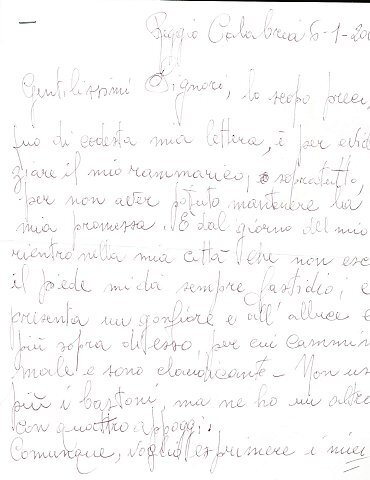 Reggio Calabria 6-1-200
Gentilissimi Signori, lo scopo preci
puo di codesta mia lettera, è per evid
ziare il mio rammarico, e sopratutto,
per non aver potuto mantenere la
mia promessa. E' dal giorno del mio
rientro nella mia città che non esc
il piede mi dà sempre fastidio; e
presenta un gonfiore e all'alluce e
più sopra di esso per cui cammin
male e sono claudicante - Non us
più i bastoni ma ne ho un altro
con quattro appoggi.
Comunque, voglio esprimere i miei